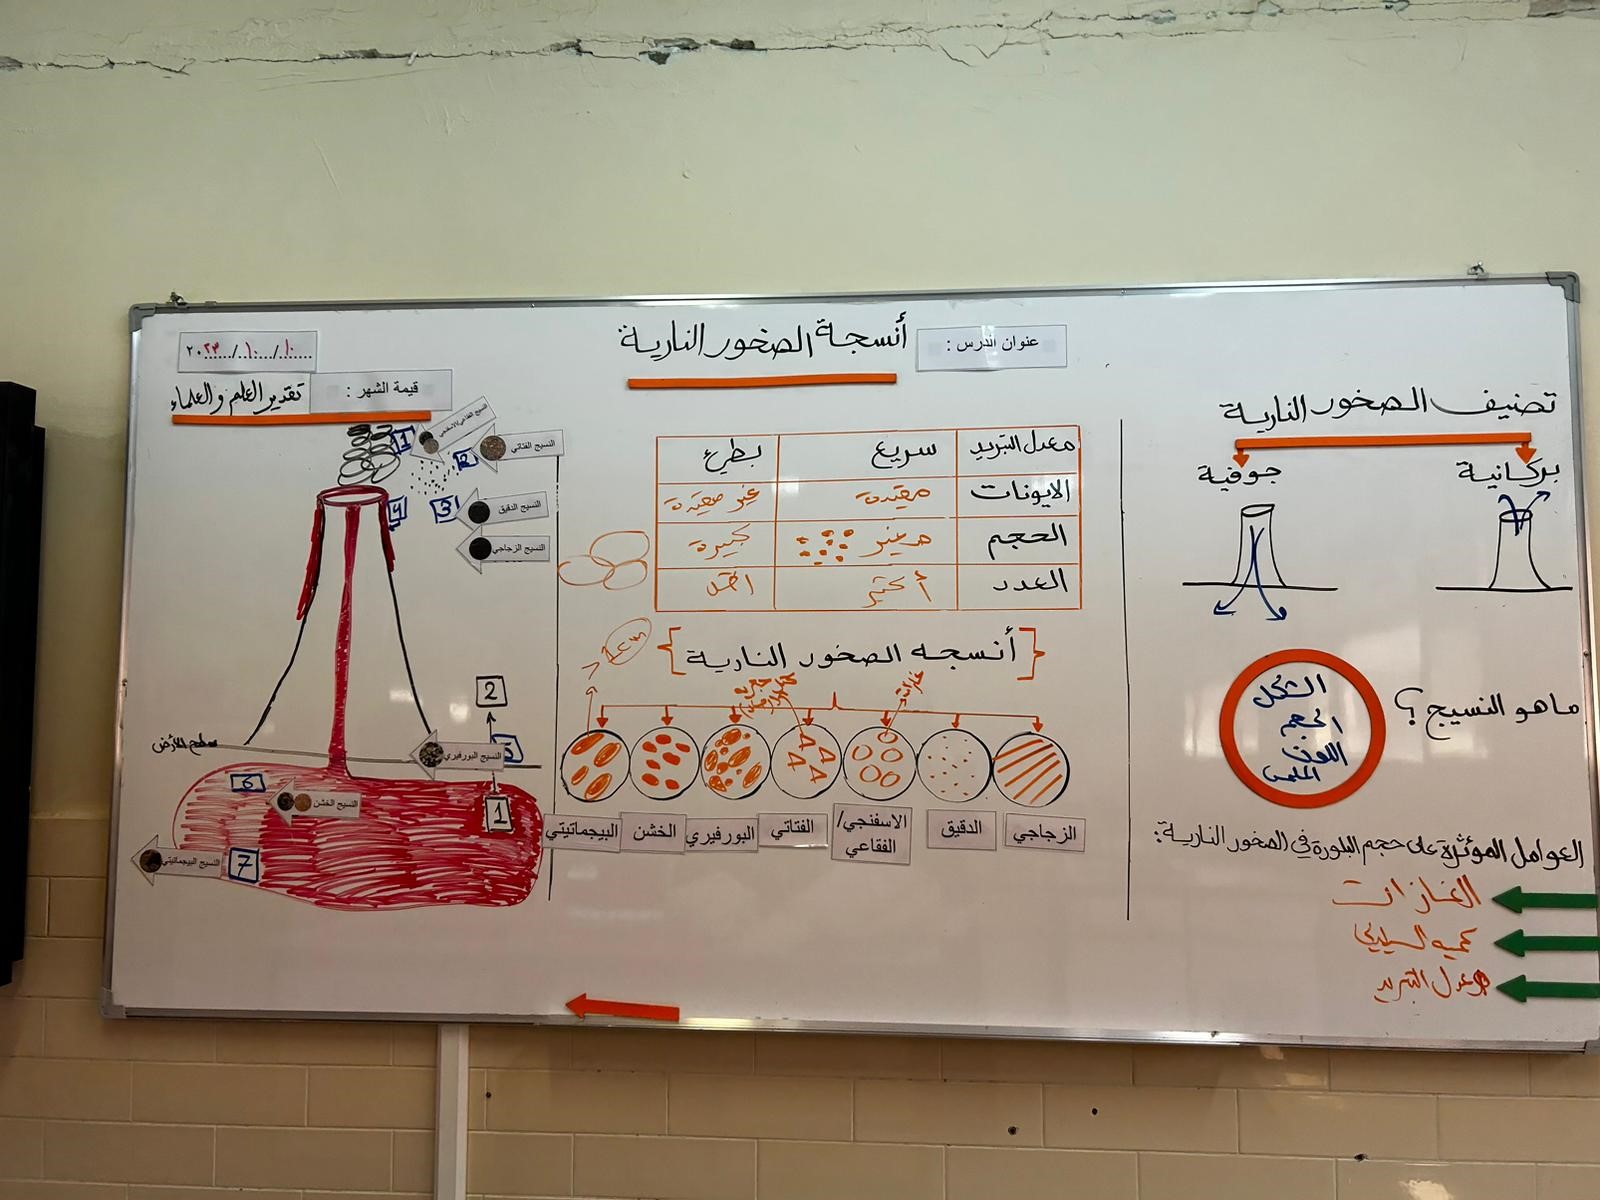 عنوان الدرس :
أنسجة الصخور النارية
١٠/١٠/٢٠٢٣
قيمة الشهر :
تقدير العلم والعلماء
تصنيف الصخور النارية
بركانية
جوفية
ما هو النسيج ؟
الشكل
الحجم
اللون
الملمس
العوامل المؤثرة على حجم البلورة في الصخور النارية :
الغازات
كمية السيليكا
معدل التبريد
معدل التبريد سريع بطيء
الايونات مقيدة غير مقيدة
الحجم صغير كبيرة
العدد أكثر اقل
{أنسجه الصخور النارية}
غازات
الزجاجي
الدقيق
الاسفنجي/
الفقاعي
الفتاتي
البورفيري
الخشن
البيجماتيتي
1
النسيج الفتاتي
2
3
النسيج الدقيق
4
النسيج الزجاجي
2
سطح الأرض
النسيج البورفيري
5
6
النسيج الخشن
1
النسيج البيجماتيتي
7